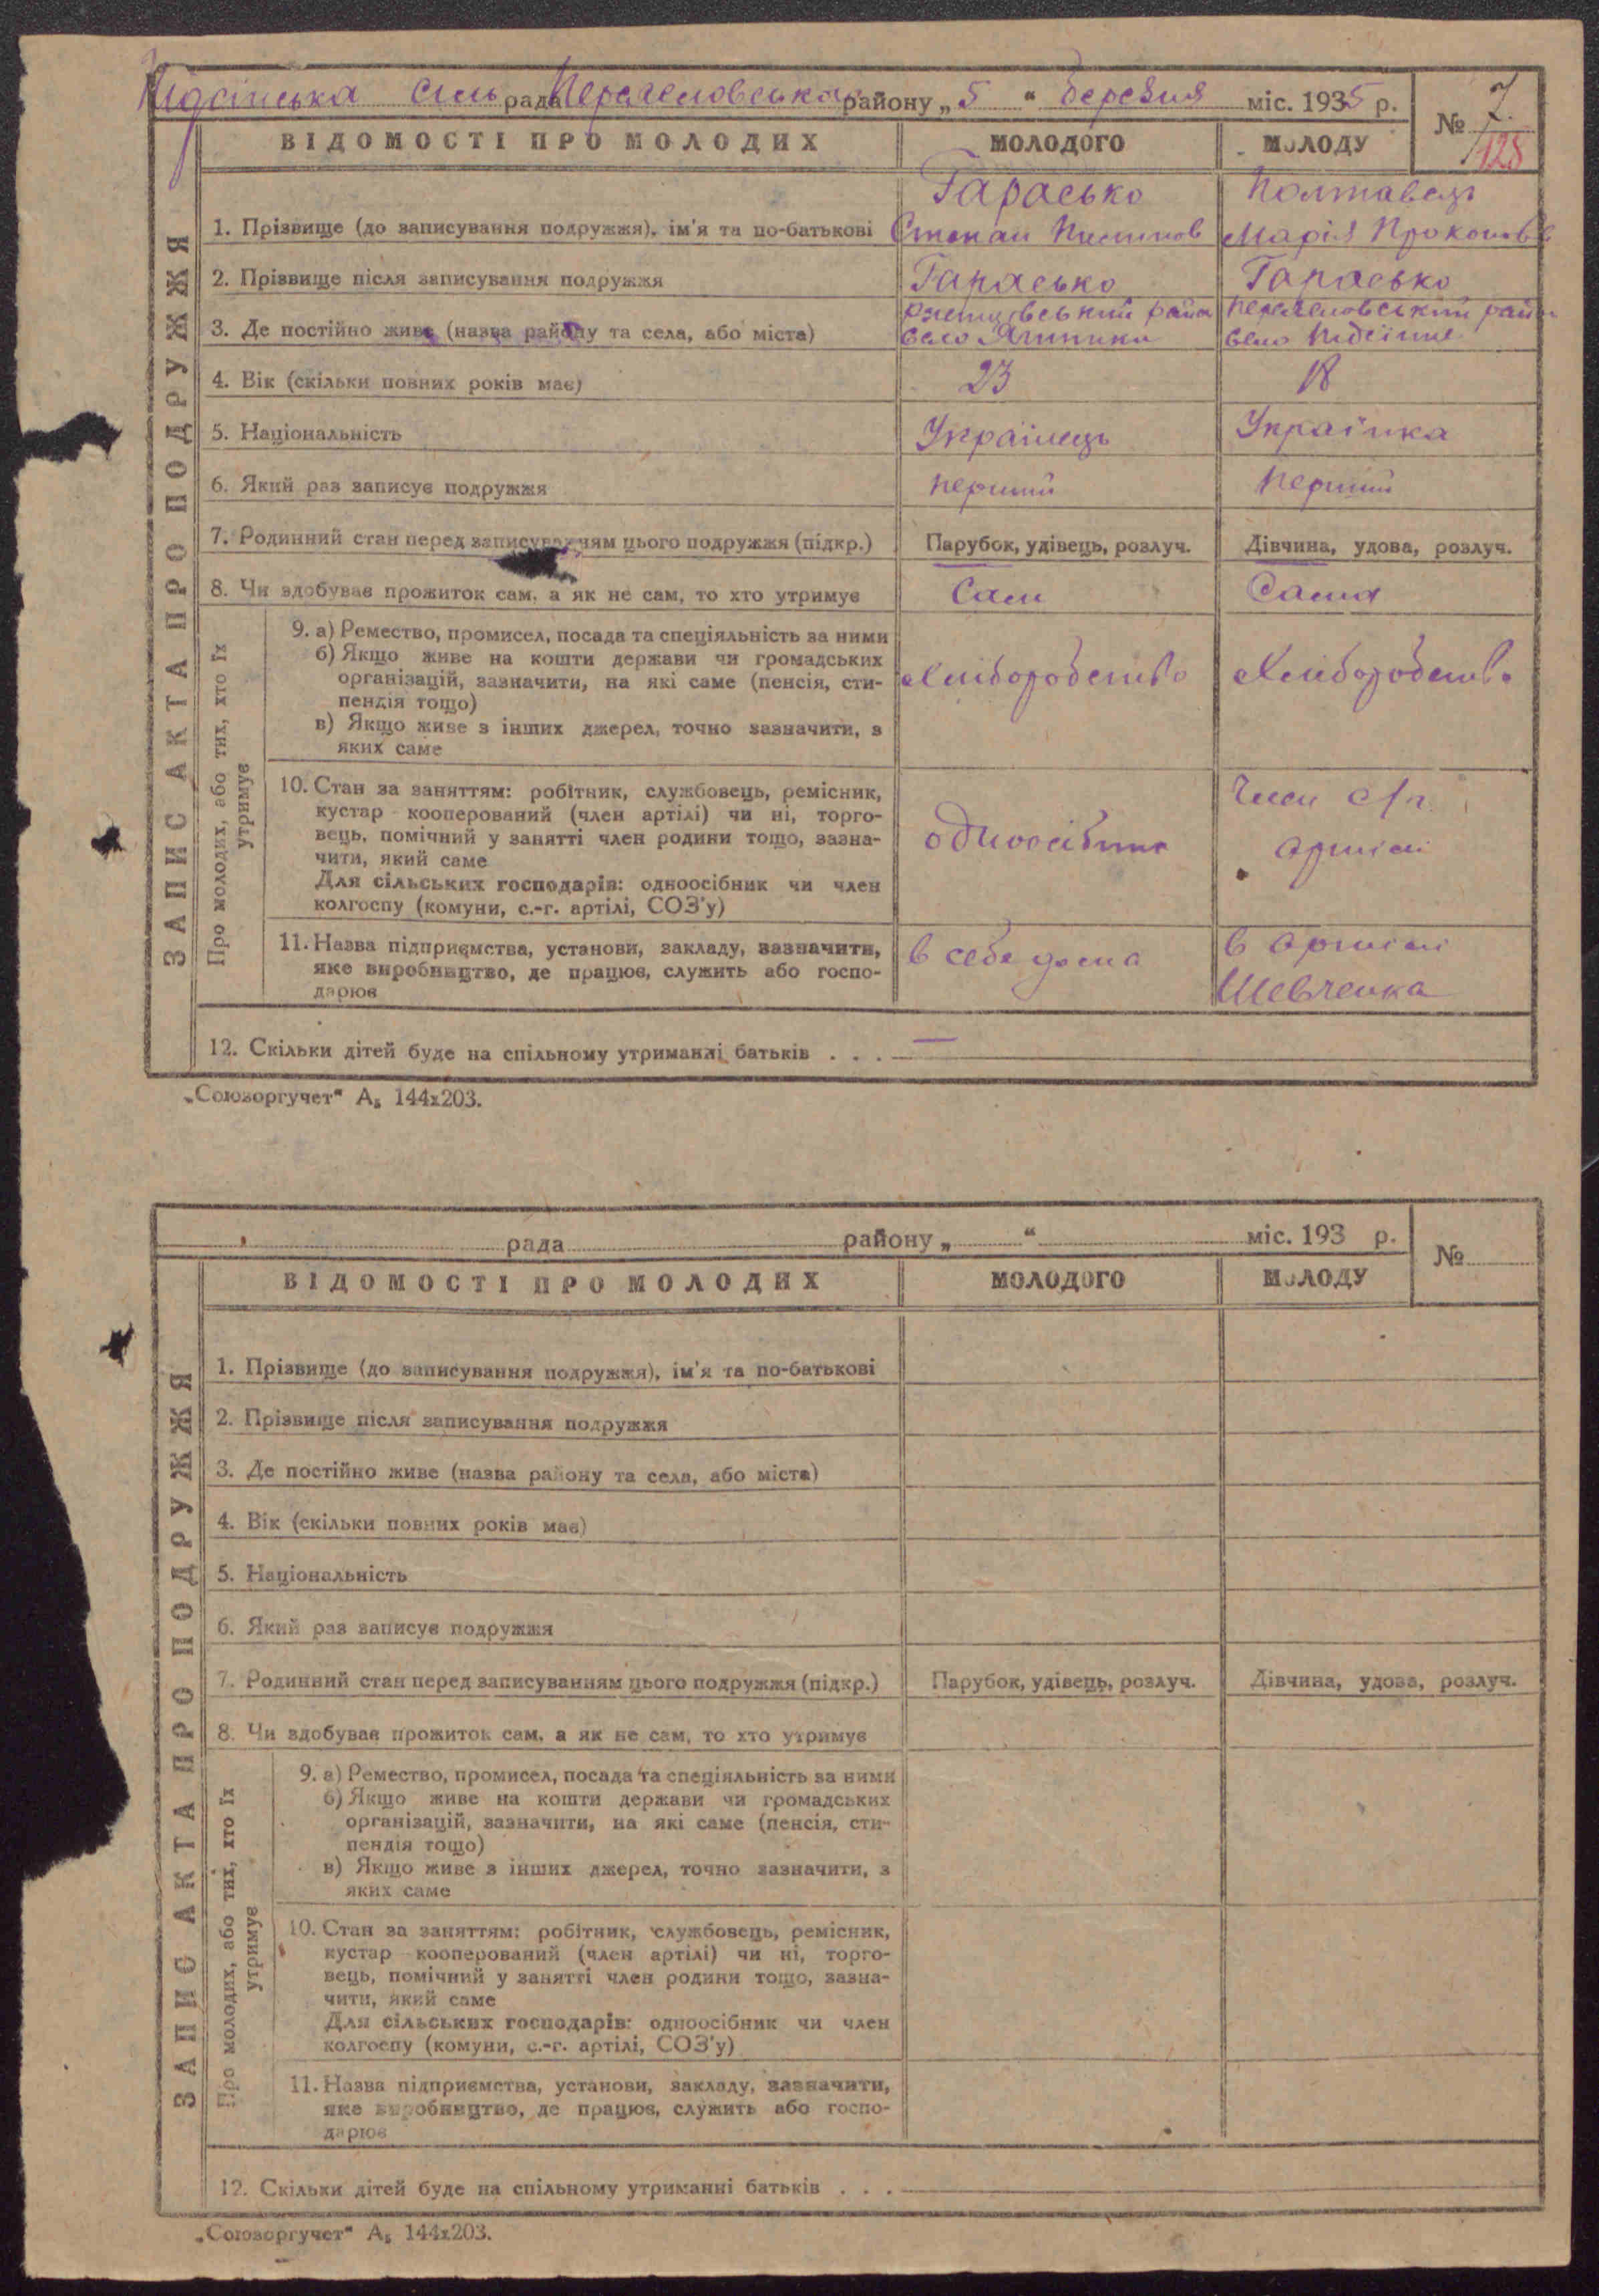 Підсінська Сіль рада Переяславська району „ 5 “ березня міс. 1935 р.
№ 7
128
ВІДОМОСТІ ПРО МОЛОДИХ МОЛОДОГО МОЛОДУ
ЗАПИС АКТА ПРО ПОДРУЖЖЯ
Тарасько Полтавець
1. Прізвище (до записування подружжя), ім'я та по-батькові Степан Марія Прокопов
2. Прізвище після записування подружжя Тарасько Тарасько
3. Де постійно живе (назва району та села, або міста)
район район
село село
4. Вік (скільки повних років має) 23 18
5. Національність Українець Українка
6. Який раз записує подружжя перший перший
7. Родинний стан перед записуванням цього подружжя (підкр.) Парубок, удівець, розлуч. Дівчина, удова, розлуч.
8. Чи здобуває прожиток сам, а як не сам, то хто утримує Сам Сама
Про молодих, або тих, хто їх утримує
9. а) Ремество, промисел, посада та спеціяльність за ними
б) Якщо живе на кошти держави чи громадських
організацій, зазначити, на які саме (пенсія, сти-
пендія тощо)
в) Якщо живе з інших джерел, точно зазначити, з
яких саме
Хліборобство Хліборобство
10. Стан за заняттям: робітник, службовець, ремісник,
кустар кооперований (член артілі) чи ні, торго-
вець, помічний у занятті член родини тощо, зазна-
чити, який саме
Для сільських господарів: одноосібник чи член
колгоспу (комуни, с.-г. артілі, СОЗ'у)
одноосібник Член с/г
артілі
11. Назва підприємства, установи, закладу, зазначити,
яке виробництво, де працює, служить або госпо-
дарює
в себе дома в артілі
Шевченка
12. Скільки дітей буде на спільному утриманні батьків . . . —
„Союзоргучет“ А₅ 144х203.
рада району „ “ міс. 193 р.
№
ВІДОМОСТІ ПРО МОЛОДИХ МОЛОДОГО МОЛОДУ
ЗАПИС АКТА ПРО ПОДРУЖЖЯ
1. Прізвище (до записування подружжя), ім'я та по-батькові
2. Прізвище після записування подружжя
3. Де постійно живе (назва району та села, або міста)
4. Вік (скільки повних років має)
5. Національність
6. Який раз записує подружжя
7. Родинний стан перед записуванням цього подружжя (підкр.) Парубок, удівець, розлуч. Дівчина, удова, розлуч.
8. Чи здобуває прожиток сам, а як не сам, то хто утримує
Про молодих, або тих, хто їх утримує
9. а) Ремество, промисел, посада та спеціяльність за ними
б) Якщо живе на кошти держави чи громадських
організацій, зазначити, на які саме (пенсія, сти-
пендія тощо)
в) Якщо живе з інших джерел, точно зазначити, з
яких саме
10. Стан за заняттям: робітник, службовець, ремісник,
кустар кооперований (член артілі) чи ні, торго-
вець, помічний у занятті член родини тощо, зазна-
чити, який саме
Для сільських господарів: одноосібник чи член
колгоспу (комуни, с.-г. артілі, СОЗ'у)
11. Назва підприємства, установи, закладу, зазначити,
яке виробництво, де працює, служить або госпо-
дарює
12. Скільки дітей буде на спільному утриманні батьків . . .
„Союзоргучет“ А₅ 144х203.